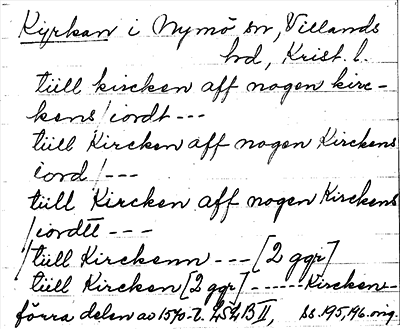 Kyrkan i Nymö sn, Villands
hd, Krist. l.
tüll kircken aff nogen kirc-
kens / iordt ---
tüll Kircken aff nogen Kirckens
iord / ---
tüll Kircken aff nogen Kirckens
/ iordtt ---
/ tüll Kirckenn --- [2 ggr]
tüll Kircken [2 ggr] ------ Kircken-
förra delen av 1570-t. LSLB II, ss. 195, 196. orig.